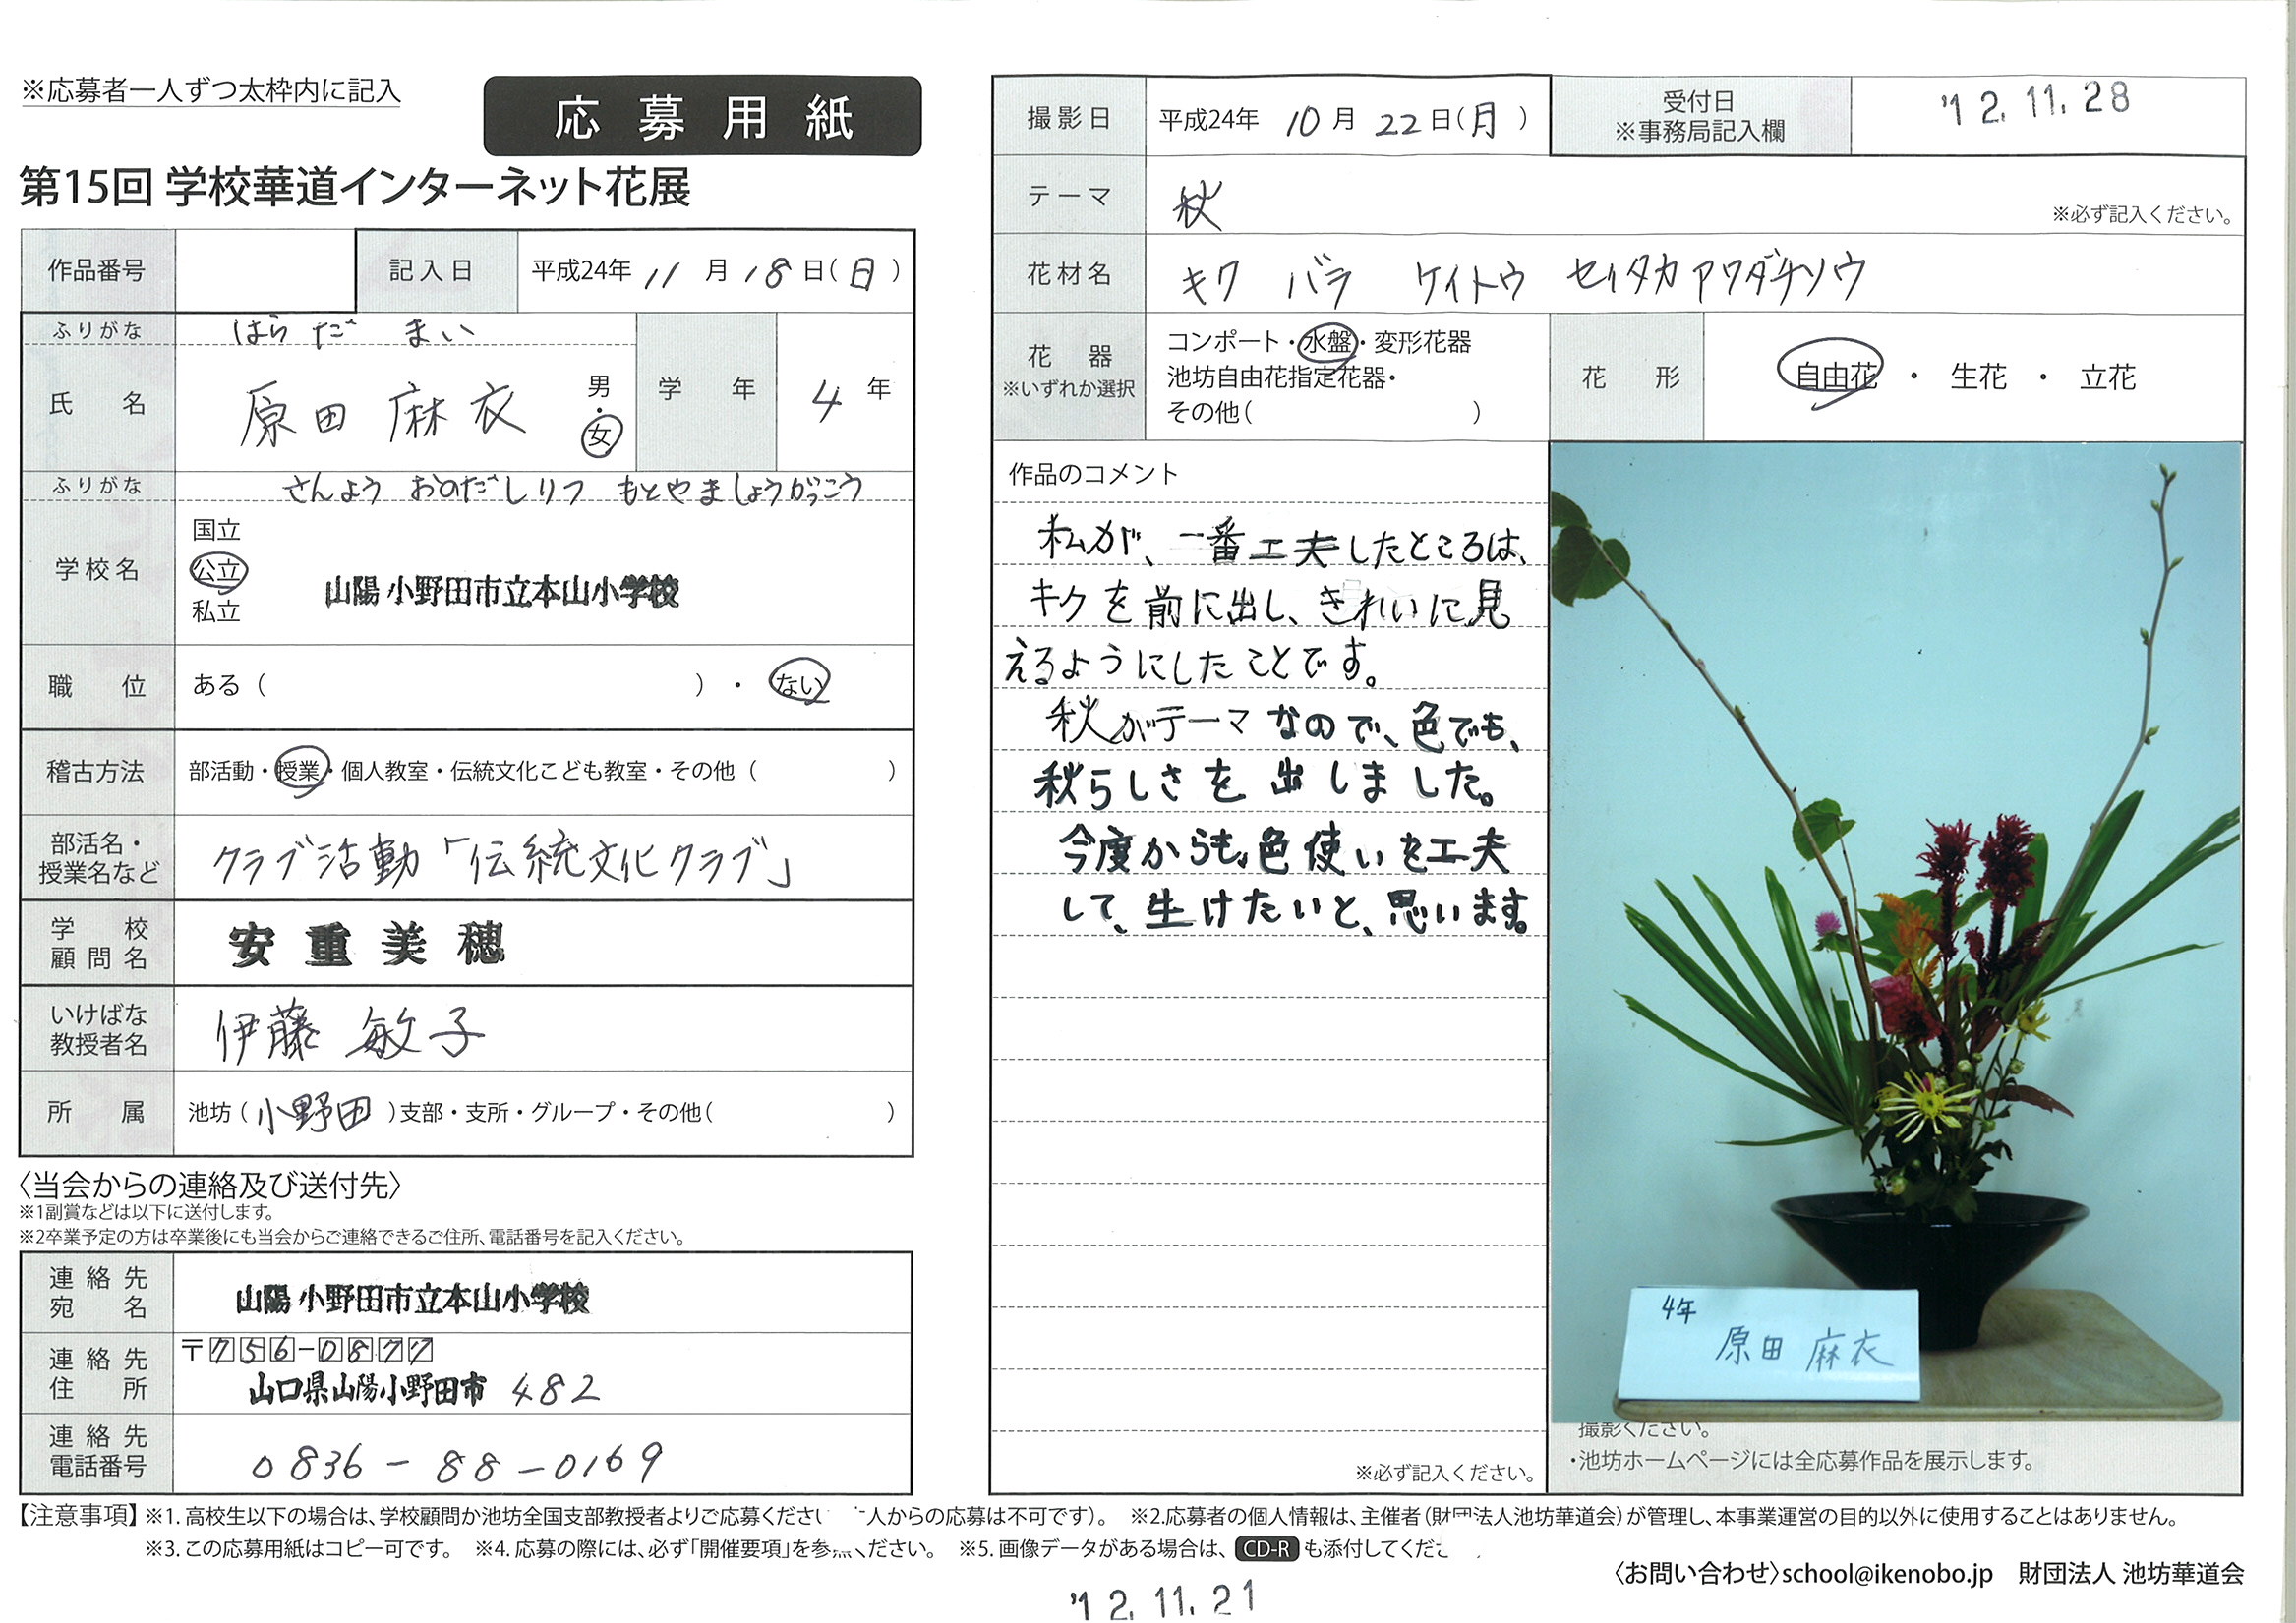 ※応募者一人ずつ太枠内に記入
応募用紙
第15回 学校華道インターネット花展
作品番号
記入日 平成24年 11月 18日(日)
ふりがな はらだ まい
氏名 原田 麻衣 男・女
学年 4年
ふりがな さんよう おのだしりつ もとやましょうがっこう
学校名 国立
公立 山陽小野田市立本山小学校
私立
職位 ある( )・ない
稽古方法 部活動・授業・個人教室・伝統文化こども教室・その他( )
部活名・授業名など クラブ活動「伝統文化クラブ」
学校顧問名 安重美穂
いけばな教授者名 伊藤 敏子
所属 池坊(小野田)支部・支所・グループ・その他( )
〈当会からの連絡及び送付先〉
※1副賞などは以下に送付します。
※2卒業予定の方は卒業後にも当会からご連絡できるご住所、電話番号を記入ください。
連絡先宛名 山陽小野田市立本山小学校
連絡先住所 〒756-0877
山口県山陽小野田市 482
連絡先電話番号 0836-88-0169
撮影日 平成24年 10月 22日(月)
受付日
※事務局記入欄
'12.11.28
テーマ 秋 ※必ず記入ください。
花材名 キク バラ ケイトウ セイタカアワダチソウ
花器
※いずれか選択
コンポート・水盤・変形花器
池坊自由花指定花器・
その他( )
花形 自由花・生花・立花
作品のコメント
私が、一番工夫したところは、
キクを前に出し、きれいに見
えるようにしたことです。
秋がテーマなので、色でも、
秋らしさを出しました。
今度からも、色使いを工夫
して、生けたいと、思います。
※必ず記入ください。
4年
原田 麻衣
撮影ください。
・池坊ホームページには全応募作品を展示します。
【注意事項】※1.高校生以下の場合は、学校顧問か池坊全国支部教授者よりご応募ください 人からの応募は不可です)。 ※2.応募者の個人情報は、主催者(財団法人池坊華道会)が管理し、本事業運営の目的以外に使用することはありません。
※3.この応募用紙はコピー可です。 ※4.応募の際には、必ず「開催要項」を参照ください。 ※5.画像データがある場合は、CD-Rも添付してくだ
〈お問い合わせ〉school@ikenobo.jp 財団法人 池坊華道会
'12.11.21